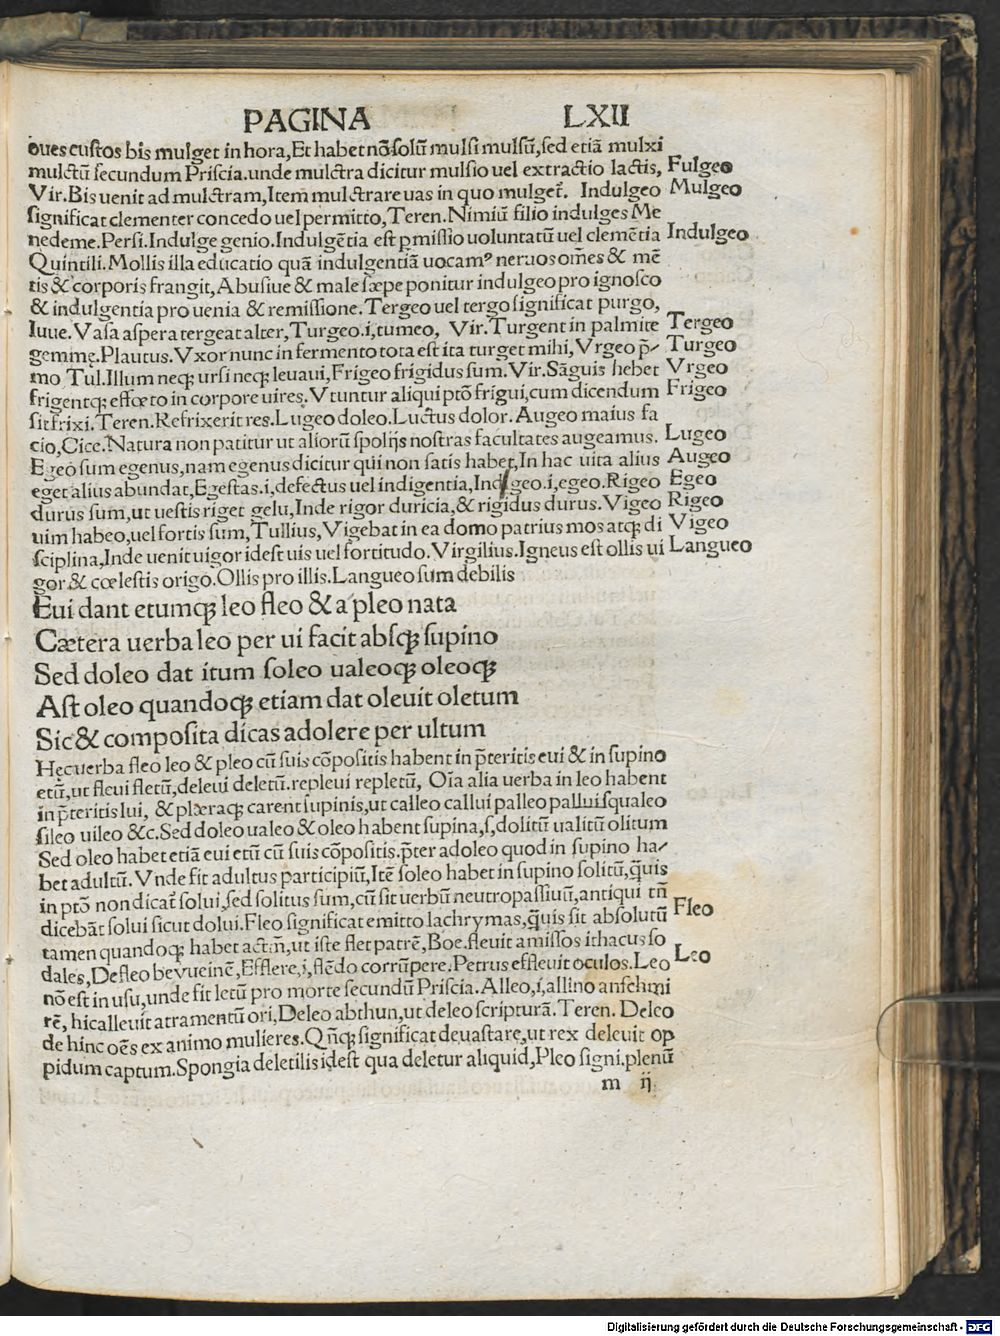 PAGINA LXII
oues custos bis mulget in hora, Et habet nõ solũ mulsi mulsũ, sed etiã mulxi
mulctũ secundum Priscia. unde mulctra dicitur mulsio uel extractio lactis, Fulgeo
Vir. Bis uenit ad mulctram, Item mulctrare uas in quo mulget᷑. Indulgeo Mulgeo
significat clementer concedo uel permitto, Teren. Nimiũ filio indulges Me
nedeme. Persi. Indulge genio. Indulgẽtia est ꝑmissio uoluntatũ uel clemẽtia Indulgeo
Quintili. Mollis illa educatio quã indulgentiã uocamꝰ neruos om̃es & mẽ
tis & corporis frangit, Abusiue & male sæpe ponitur indulgeo pro ignosco
& indulgentia pro uenia & remissione. Tergeo uel tergo significat purgo,
Iuue. Vasa aspera tergeat alter, Turgeo .i. tumeo, Vir. Turgent in palmite Tergeo
gemmę. Plautus. Vxor nunc in fermento tota est ita turget mihi, Vrgeo p̃- Turgeo
mo Tul. Illum neqꝫ ursi neqꝫ leuaui, Frigeo frigidus sum. Vir. Sãguis hebet Vrgeo
frigentqꝫ effœto in corpore uires. Vtuntur aliqui ptõ frigui, cum dicendum Frigeo
sit frixi. Teren. Refrixerit res. Lugeo doleo. Luctus dolor. Augeo maius fa
cio, Cice. Natura non patitur ut aliorũ spolijs nostras facultates augeamus. Lugeo
Egeo sum egenus, nam egenus dicitur qui non satis habet, In hac uita alius Augeo
eget alius abundat, Egestas .i. defectus uel indigentia, Indigeo .i. egeo. Rigeo Egeo
durus sum, ut uestis riget gelu, Inde rigor duricia, & rigidus durus. Vigeo Rigeo
uim habeo, uel fortis sum, Tullius, Vigebat in ea domo patrius mos atqꝫ di Vigeo
sciplina, Inde uenit uigor idest uis uel fortitudo. Virgilius. Igneus est ollis ui Langueo
gor & cœlestis origo. Ollis pro illis. Langueo sum debilis
Eui dant etumqꝫ leo fleo & a pleo nata
Cætera uerba leo per ui facit absqꝫ supino
Sed doleo dat itum soleo ualeoqꝫ oleoqꝫ
Ast oleo quandoqꝫ etiam dat oleuit oletum
Sic & composita dicas adolere per ultum
Hęc uerba fleo leo & pleo cũ suis cõpositis habent in p̃teritis eui & in supino
etũ, ut fleui fletũ, deleui deletũ. repleui repletũ, Oĩa alia uerba in leo habent
in p̃teritis lui, & plæraqꝫ carent supinis, ut calleo callui palleo pallui squaleo
sileo uileo &c. Sed doleo ualeo & oleo habent supina, s, dolitũ ualitũ olitum
Sed oleo habet etiã eui etũ cũ suis cõpositis. p̃ter adoleo quod in supino ha-
bet adultũ. Vnde fit adultus participiũ, Itẽ soleo habet in supino solitũ, q̃uis
in ptõ non dicat᷑ solui, sed solitus sum, cũ sit uerbũ neutropassiuũ, antiqui tñ
dicebãt solui sicut dolui. Fleo significat emitto lachrymas, q̃uis sit absolutũ Fleo
tamen quandoqꝫ habet actiñ, ut iste flet patrẽ, Boe. fleuit amissos ithacus so
dales, Defleo beweinẽ, Efflere, i, flẽdo corrũpere. Petrus effleuit oculos. Leo Leo
nõ est in usu, unde fit letũ pro morte secundũ Priscia. Alleo, i, allino anschmi
rẽ, hic alleuit atramentũ ori, Deleo abthun, ut deleo scripturã. Teren. Deleo
de hinc oẽs ex animo mulieres. Qñqꝫ significat deuastare, ut rex deleuit op
pidum captum. Spongia deletilis idest qua deletur aliquid, Pleo signi. plenũ
m ij
Digitalisierung gefördert durch die Deutsche Forschungsgemeinschaft - DFG